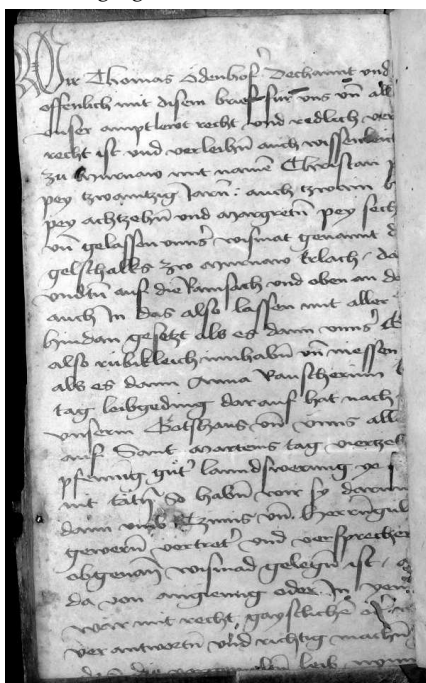 Wir Thomas Odenhofer Dechannt und
offenlich mit disem brief fur uns un all
unser amptlewt recht und redlich ver
recht ist und verleihn auch wissenleich
zu Murnaw mit namen Christan
pey tzwaintzig Jarn auch tzwain
pey achtzehn und Margretn pey sech
un gelassen unns wismat genannt
gelsthalks zw Murnaw da
undtn auf die Ramsach und oben an de
auch In das also lassen mit aller
hindan gesetzt als es dann unns
also rubikleich innhabn un niessen
als es dann Anna Rauscherinn
tag leibgeding dar auf hat nach
unserm Gotshaus un unns all
auf Sant Martens tag vierzeh
pfenning gut lanndswerung
nit tatn so habn wir sy darum
dann umb Tzinns un Herrngul
gewern vertret und versprechen
obgenant wismad gelegn ist
da von angieng oder In
war mit recht, gaystliche
ver antwortn und richtig machn
leib